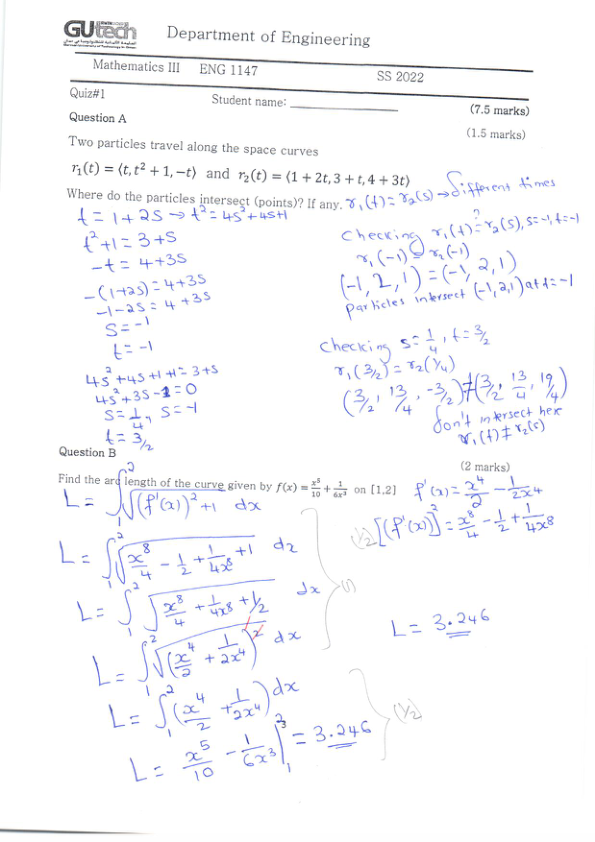 GUtech
Department of Engineering
Mathematics III ENG 1147 SS 2022
Quiz#1 Student name: (7.5 marks)
Question A (1.5 marks)
Two particles travel along the space curves
r₁(t) = ⟨t, t² + 1, −t⟩ and r₂(t) = ⟨1 + 2t, 3 + t, 4 + 3t⟩
Where do the particles intersect (points)? If any. r₁(t) = r₂(s) → different times
t = 1 + 2s → t² = 4s² + 4s + 1
t² + 1 = 3 + s
−t = 4 + 3s
−(1+2s) = 4 + 3s
−1 − 2s = 4 + 3s
s = −1
t = −1
4s² + 4s + 1 + 1 = 3 + s
4s² + 3s − 1 = 0
s = 1/4, s = −1
t = 3/2
Checking r₁(t) ?= r₂(s), s = −1, t = −1
r₁(−1) = r₂(−1)
(−1, 2, 1) = (−1, 2, 1)
Particles intersect (−1, 2, 1) at t = −1
Checking s = 1/4, t = 3/2
r₁(3/2) = r₂(1/4)
(3/2, 13/4, −3/2) ≠ (3/2, 13/4, 19/4)
don't intersect here
r₁(t) ≠ r₂(s)
Question B (2 marks)
Find the arc length of the curve given by f(x) = x⁵/10 + 1/6x³ on [1,2] f'(x) = x⁴/2 − 1/2x⁴
L = ∫₁² √((f'(x))² + 1) dx
[(f'(x)]² = x⁸/4 − 1/2 + 1/4x⁸
(1/2)
L = ∫₁² √(x⁸/4 − 1/2 + 1/4x⁸ + 1) dx
L = ∫₁² √(x⁸/4 + 1/4x⁸ + 1/2) dx (1)
L = ∫₁² √(x⁴/2 + 1/2x⁴)² dx
L = 3.246
L = ∫₁² (x⁴/2 + 1/2x⁴) dx
(1/2)
L = x⁵/10 − 1/6x³ |₁² = 3.246